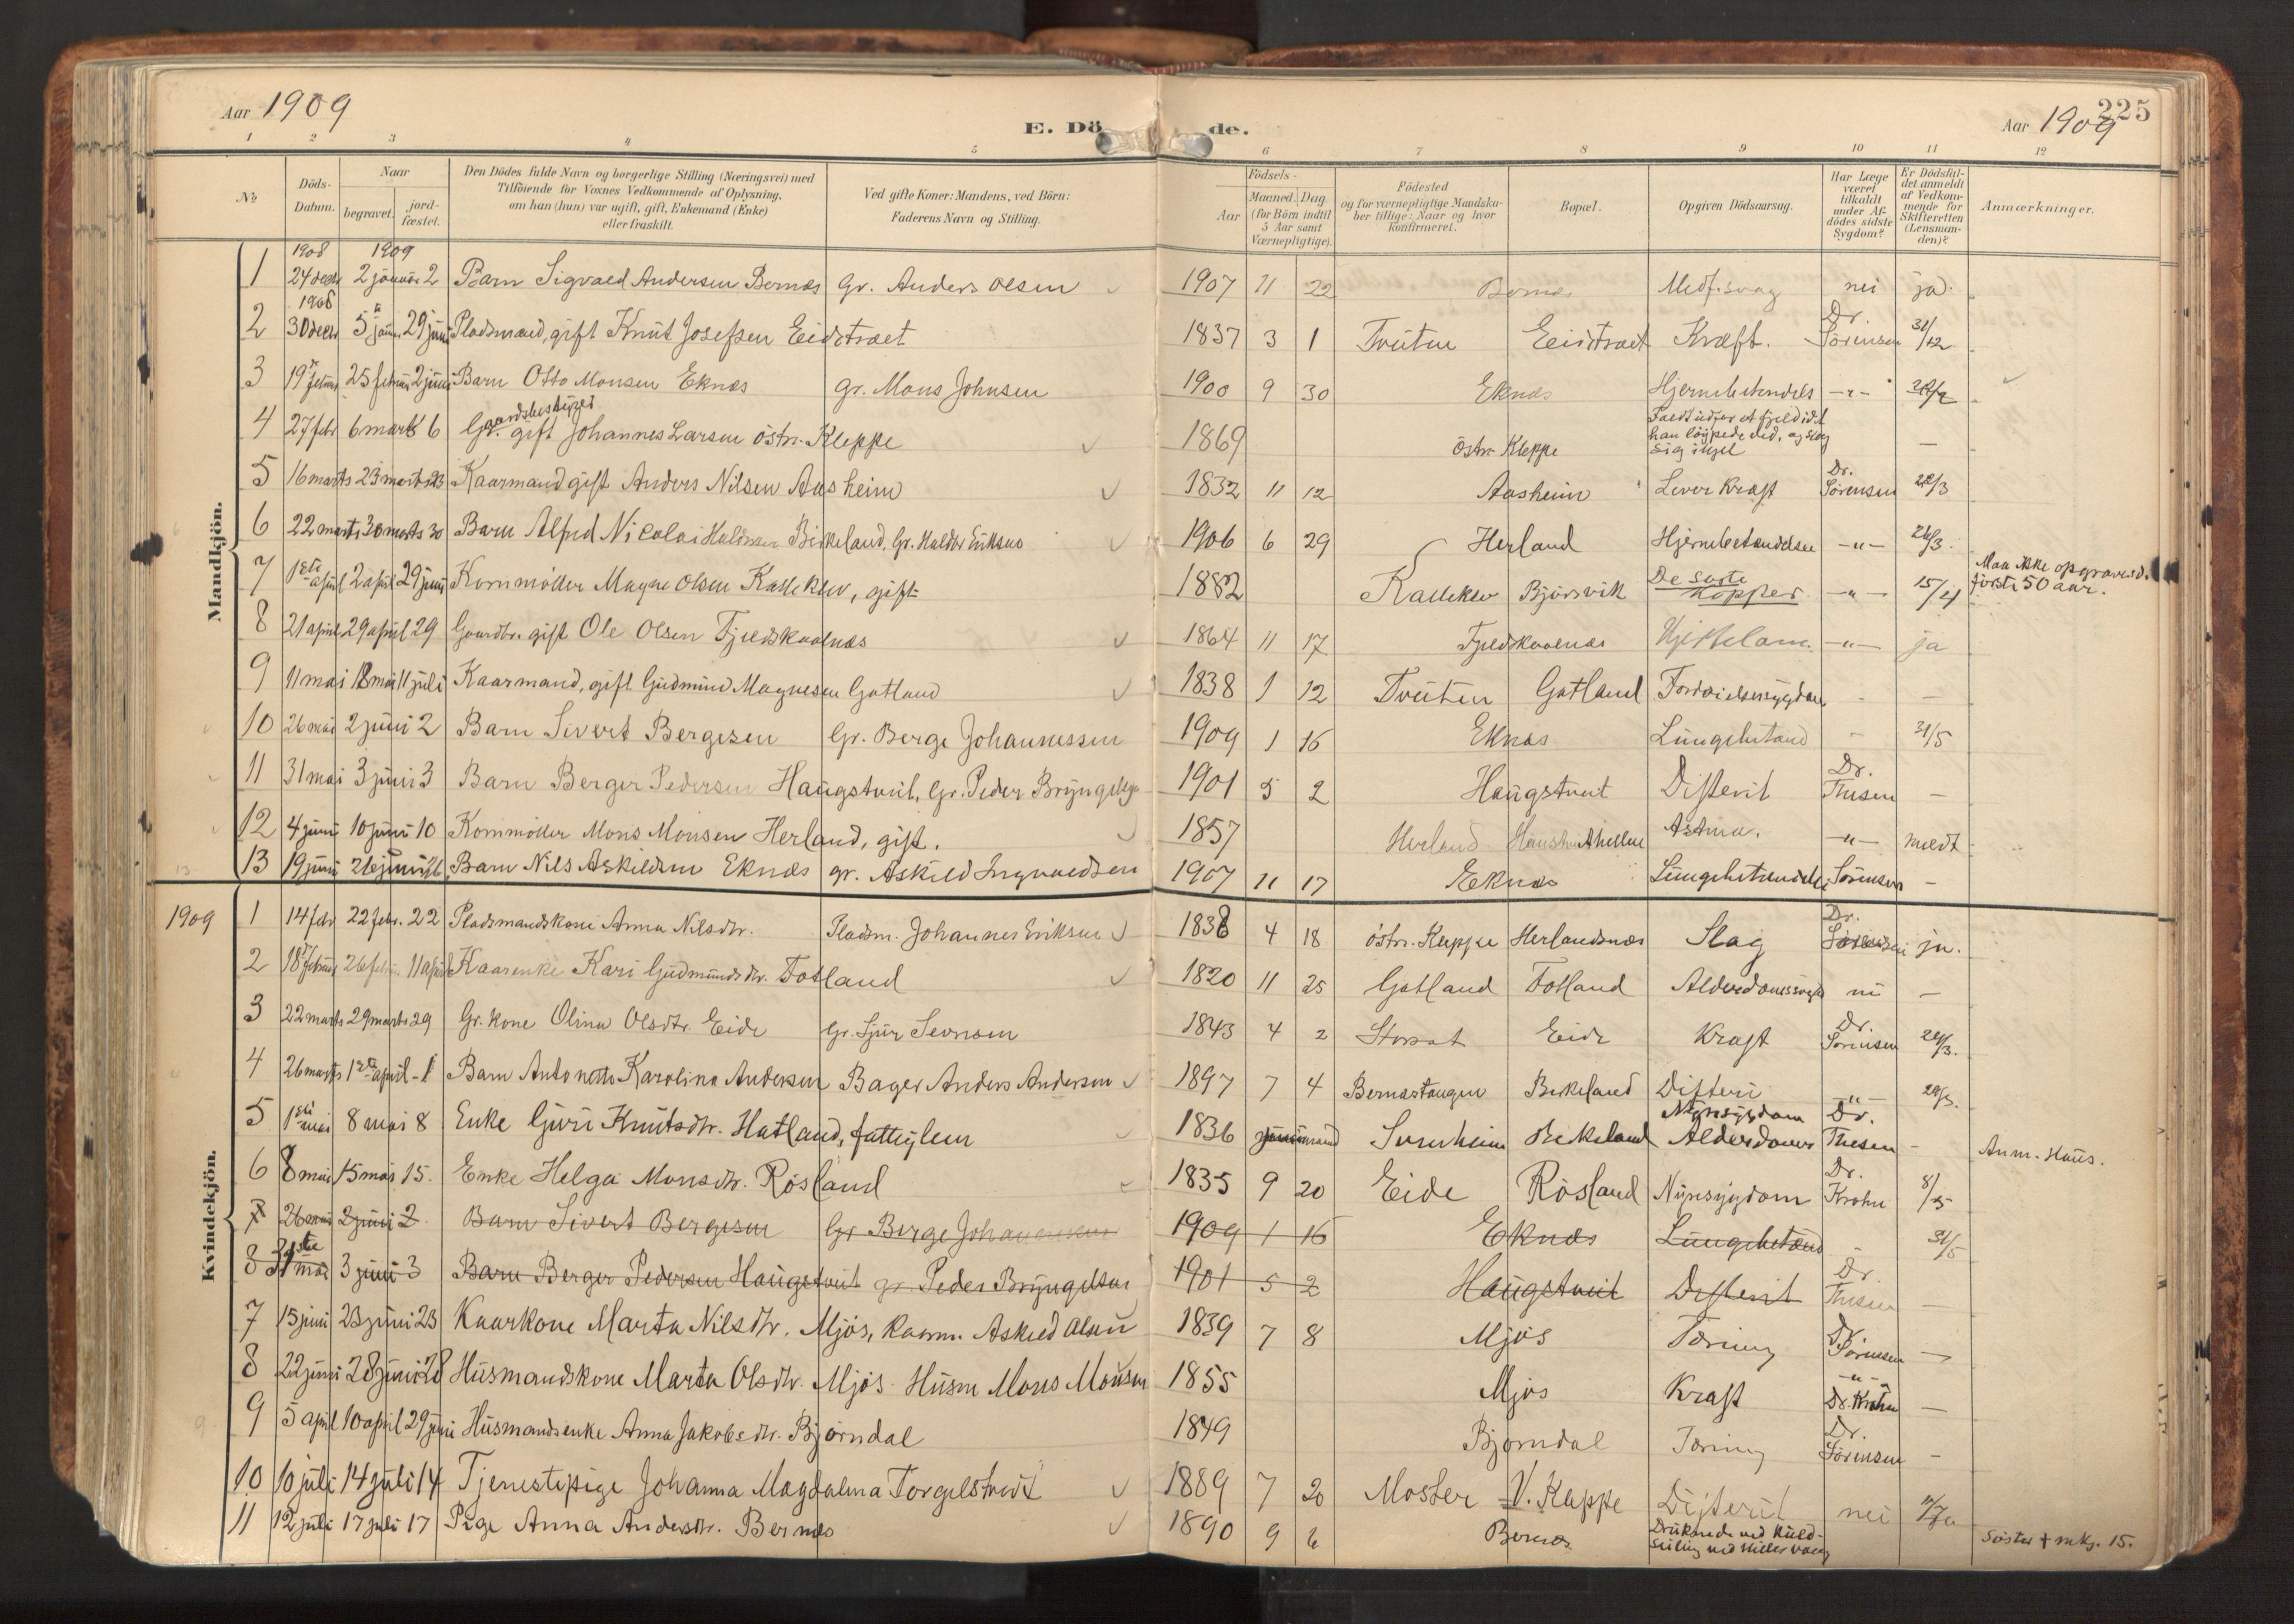 Aar 1909
E. Dö de.
Aar 1909
225
1 2 3 4 5 6 7 8 9 10 11 12
No
Döds-
Datum.
Naar
begravet.
jord-
fæstet.
Den Dödes fulde Navn og borgerlige Stilling (Næringsvei) med
Tilföiende for Voxnes Vedkommende af Oplysning.
om han (hun) var ugift, gift, Enkemand (Enke)
eller fraskilt.
Ved gifte Koner: Mandens, ved Börn:
Faderens Navn og Stilling.
Födsels-
Aar
Maaned. Dag
(for Börn indtil
5 Aar samt
Værnepligtige).
Födested
og for værnepligtige Mandska-
ber tillige: Naar og hvor
konfirmeret.
Bopæl.
Opgiven Dödsaarsag.
Har Læge
været
tilkaldt
under Af-
dödes sidste
Sygdom?
Er Dödsfal-
det anmeldt
af Vedkom-
mende for
Skifteretten
(Lensman-
den)?
Anmærkninger.
Mandkjön.
1908 1909
1 24 decbr 2 januar 2 Barn Sigvald Andersen Bernes gr. Anders Olsen 1907 11 22 Bernes Medf. svag nei ja.
1908
2 30 decbr 5 jan. 29 juni Pladsmand, gift Knut Josefsen Eidstræt 1837 3 1 Tveiten Eidstræt Kræft. Dr. Sörensen 31/12
3 19 februar 25 februar 2 juni Barn Otto Monsen Eknes gr. Mons Johnsen 1900 9 30 Eknes Hjernebetendels -"-
4 27 febr 6 marts 6 Gaardsbestyrer gift Johannes Larsen östr. Kleppe 1869 östr. Kleppe Faldt udfor et fjeld idet
han löypede ved, og slog
sig ihjel —
5 16 marts 23 marts 23 Kaarmand gift Anders Nilsen Aasheim 1832 11 12 Aasheim Lever Kraft Dr. Sörensen 22/3
6 22 marts 30 marts 30 Barn Alfred Nicolai Haldorsen Birkeland, Gr. Haldor Eriksen 1906 6 29 Herland Hjernebetændelse -"- 26/3.
7 1ste april 2 april 29 juni Kornmöller Magne Olsen Kalleklev, gift 1882 Kalleklev Bjórsvik De sorte kopper -"- 15/4 Maa ikke opgraves d.
förste 50 aar.
8 21 april 29 april 29 Gaardbr. gift Ole Olsen Fjeldskaalnes 1864 11 17 Fjeldskaalnes Hjertelam. -"- ja
9 11 mai 18 mai 11 juli Kaarmand, gift Gudmund Magnesen Gotland 1838 1 12 Tveiten Gotland - —
10 26 mai 2 juni 2 Barn Sivert Bergesen Gr. Berge Johannessen 1909 1 16 Eknes Lungebetænd - 31/5
11 31 mai 3 juni 3 Barn Berger Pedersen Haugstveit, Gr. Peder Bryngels 1901 5 2 Haugstveit Difterit Dr. Thesen —
12 4 juni 10 juni 10 Kornmöller Mons Monsen Herland, gift. 1857 Herland Astma. -"- meldt
13 19 juni 26 juni 26 Barn Nils Askildsen Eknes gr. Askild Ingvaldsen 1907 11 17 Eknes Lungebetændelse Sörensen —
1909
Kvindekjön.
1 14 febr 22 febr. 22 Pladsmandskone Anna Nilsdtr. Pladsm. Johannes Eriksen 1838 4 18 östr. Kleppe Herlandsnes Slag Dr. Sörensen ja.
2 18 februar 26 febr. 11 april Kaarenke Kari Gudmundsdtr. Fotland 1820 11 25 Gotland Fotland Alderdomssvagh nei —
3 22 marts 29 marts 29 Gr. kone Olina Olsdtr. Eide Gr. Sjur Sevrinsen 1843 4 2 Eide Kraft Dr. Sörensen 24/3.
4 26 marts 1ste april - 1 Barn Antonette Karolina Andersen Bager Anders Andersen 1897 7 4 Bernestangen Birkeland Difteri -"- 29/3.
5 1ste mai 8 mai 8 Enke Guri Knutsdtr. Hatland, fattiglem 1836 Birkeland Nyresygdom
Alderdoms Dr. Thesen - Anm. Haus.
6 8 mai 15 mai 15. Enke Helga Monsdtr. Rösland 1835 9 20 Eide Rösland Nyresygdom Dr. Krohn 8/5
7 26 mai 2 juni 2 Barn Sivert Bergesen Gr Berge Johannessen 1909 1 16 Eknes Lungebetænd - 31/5
8 31ste mai 3 juni 3 Barn Berger Pedersen Haugstveit gr Peder Bryngelsen 1901 5 2 Haugstveit Difterit Dr Thesen —
7 15 juni 23 juni 23 Kaarkone Marta Nilsdtr. Mjös, kaarm. Askild Olsen 1839 7 8 Mjös Tæring Dr. Sörensen —
8 22 juni 28 juni 28 Husmandskone Marta Olsdtr. Mjös Husm Mons Monsen 1855 Mjös Kraft -"- Dr. Krohn —
9 5 april 10 april 29 juni Husmandsenke Anna Jakobsdtr. Björndal 1849 Björndal Tæring Dr. Sörensen -
10 10 juli 14 juli 14 Tjenestepige Johanna Magdalena Torgelstveit 1889 7 20 Moster V. Kleppe Difterit nei
11 12 juli 17 juli 17 Pige Anna Andersdtr. Bernes 1890 9 6 Bernes Druknede ved kuld-
seiling ved Söster + mkj. 15.